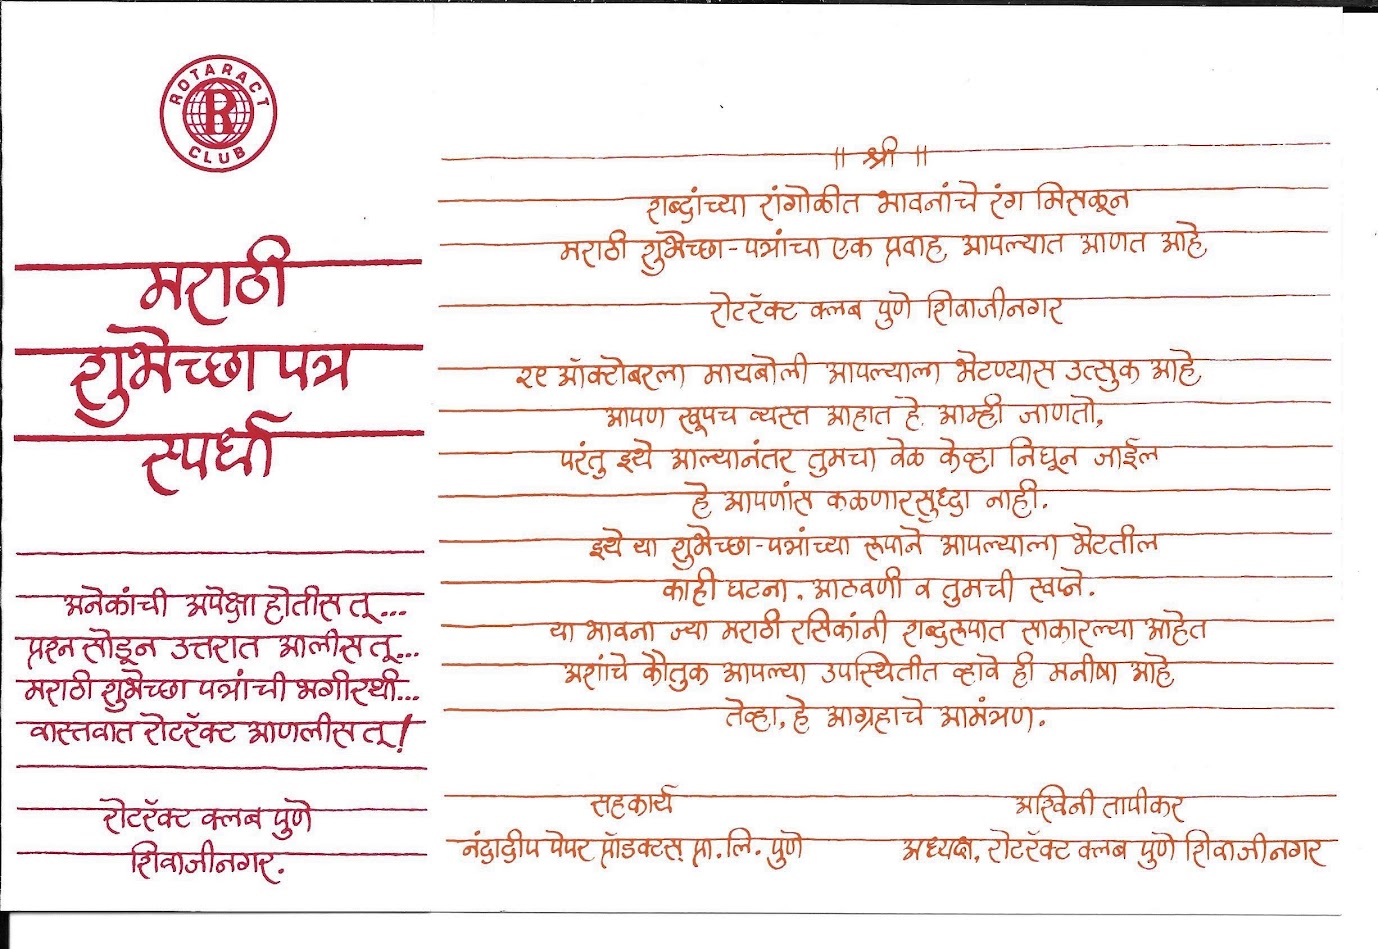 ROTARACT
R
CLUB
मराठी
शुभेच्छा पत्र
स्पर्धा
अनेकांची अपेक्षा होतीस तू...
प्रश्न सोडून उत्तरात आलीस तू...
मराठी शुभेच्छा पत्रांची भगीरथी...
वास्तवात रोटरॅक्ट आणलीस तू!
रोटरॅक्ट क्लब पुणे
शिवाजीनगर.
॥ श्री ॥
शब्दांच्या रांगोळीत भावनांचे रंग मिसळून
मराठी शुभेच्छा-पत्रांचा एक प्रवाह आपल्यात आणत आहे,
रोटरॅक्ट क्लब पुणे शिवाजीनगर
२९ ऑक्टोबरला मायबोली आपल्याला भेटण्यास उत्सुक आहे,
आपण खूपच व्यस्त आहात हे आम्ही जाणतो,
परंतु इथे आल्यानंतर तुमचा वेळ केव्हा निघून जाईल
हे आपणांस कळणारसुध्दा नाही.
इथे या शुभेच्छा-पत्रांच्या रूपाने आपल्याला भेटतील
काही घटना, आठवणी व तुमची स्वप्ने.
या भावना ज्या मराठी रसिकांनी शब्दरूपात साकारल्या आहेत
अशांचे कौतुक आपल्या उपस्थितीत व्हावे ही मनीषा आहे,
तेव्हा, हे आग्रहाचे आमंत्रण.
सहकार्य
नंदादीप पेपर प्रॉडक्टस् प्रा. लि. पुणे
अश्विनी तापीकर
अध्यक्ष, रोटरॅक्ट क्लब पुणे शिवाजीनगर